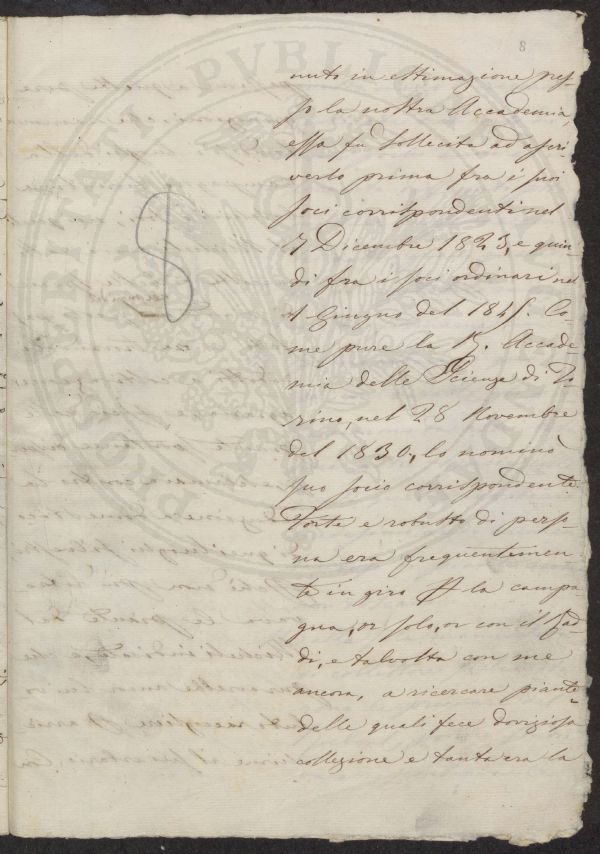 8
nuto in estimazione pres-
so la nostra Accademia,
essa fu sollecita ad ascri-
verlo prima fra i suoi
soci corrispondenti nel
7 Dicembre 1823, e quin-
di fra i soci ordinari nel
1 Giugno del 1845. Co-
me pure la R. Accade-
mia delle Scienze di To-
rino, nel 28 Novembre
del 1830, lo nominò
suo socio corrispondente.
Forte e robusto di perso-
na era frequentemen-
te in giro per la campa
gna, or solo, or con il
di, e talvolta con me
ancora, a ricercare piante
delle quali fece doviziosa
collezione e tanta era la
8